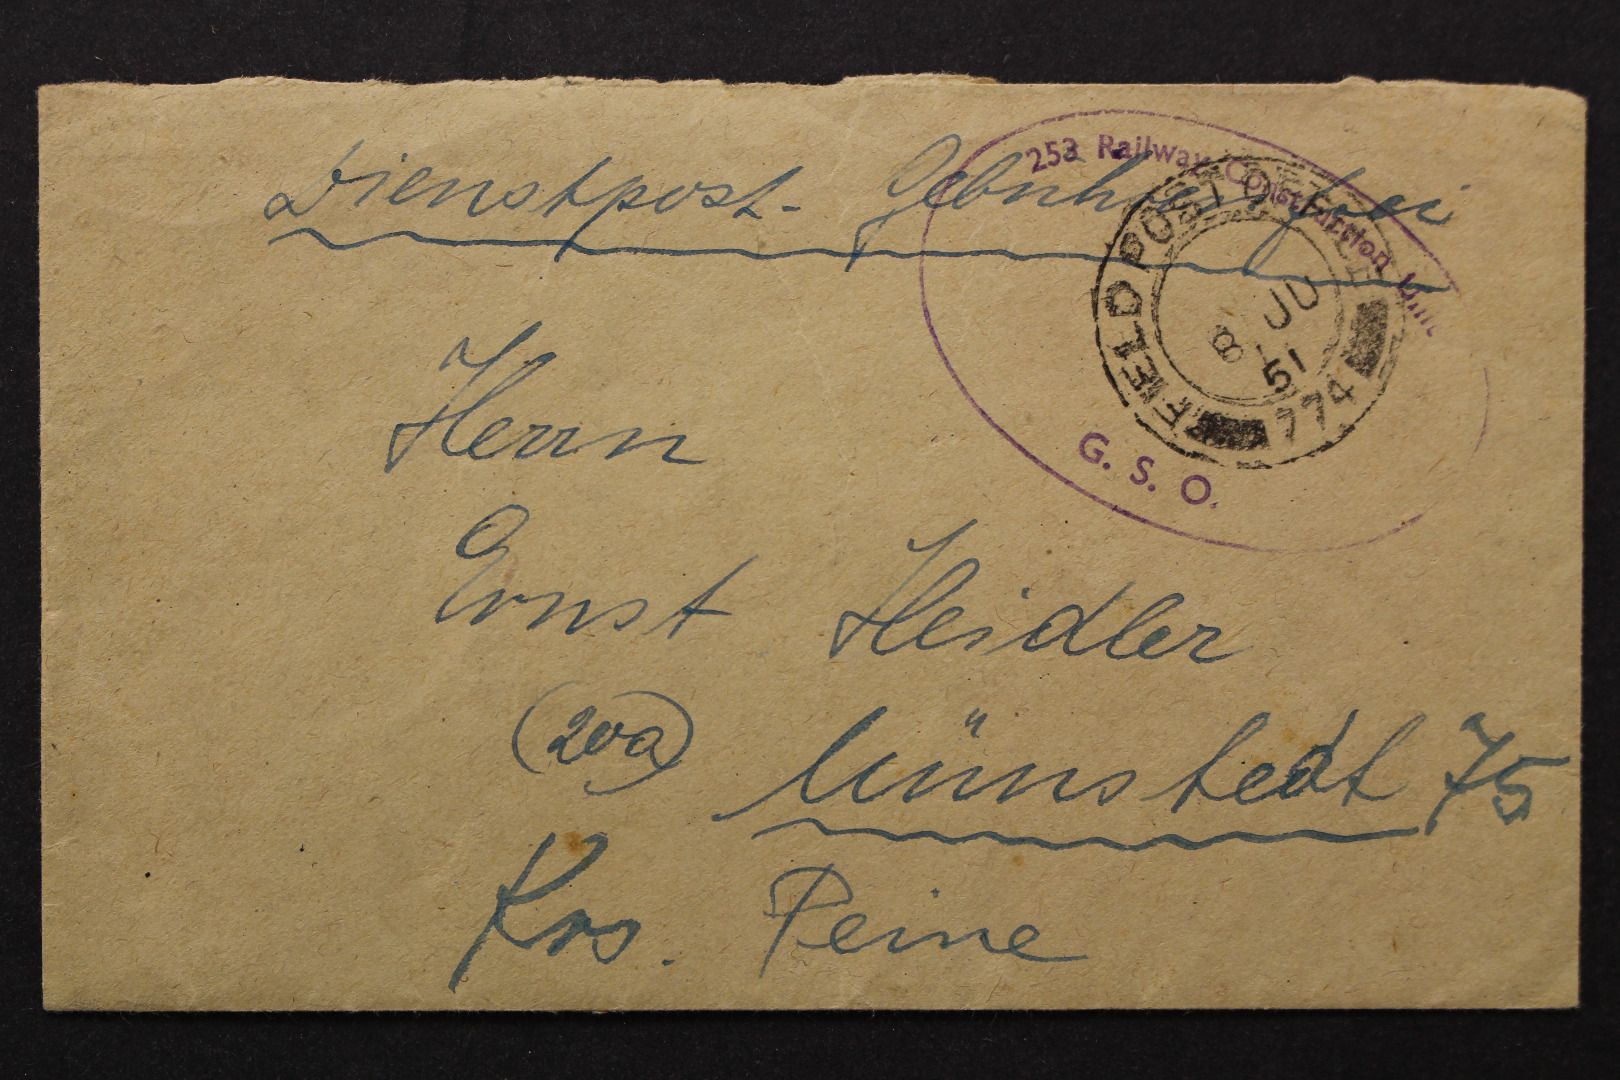 Dienstpost - Gebührenfrei
253 Railway Construction Unit
G. S. O.
FIELD POST OFFICE
8 JU
51
774
Herrn
Ernst Heidler
(20a) Münstedt 75
Krs. Peine